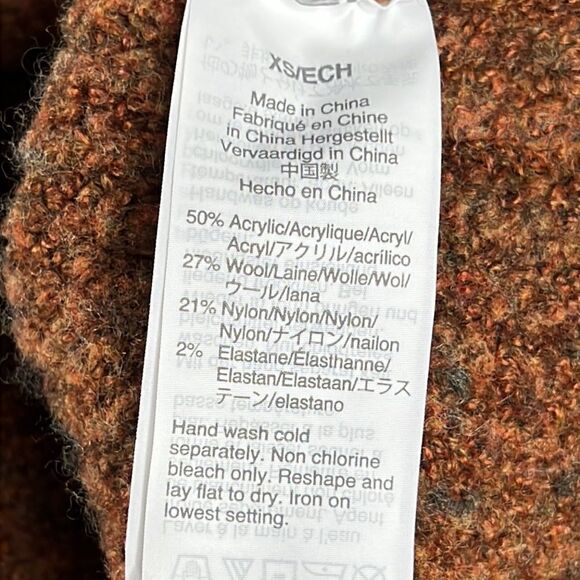 XS/ECH
Made in China
Fabriqué en Chine
in China Hergestellt
Vervaardigd in China
中国製
Hecho en China
50% Acrylic/Acrylique/Acryl/
Acryl/アクリル/acrílico
27% Wool/Laine/Wolle/Wol/
ウール/lana
21% Nylon/Nylon/Nylon/
Nylon/ナイロン/nailon
2% Elastane/Élasthanne/
Elastan/Elastaan/エラス
テーン/elastano
Hand wash cold
separately. Non chlorine
bleach only. Reshape and
lay flat to dry. Iron on
lowest setting.